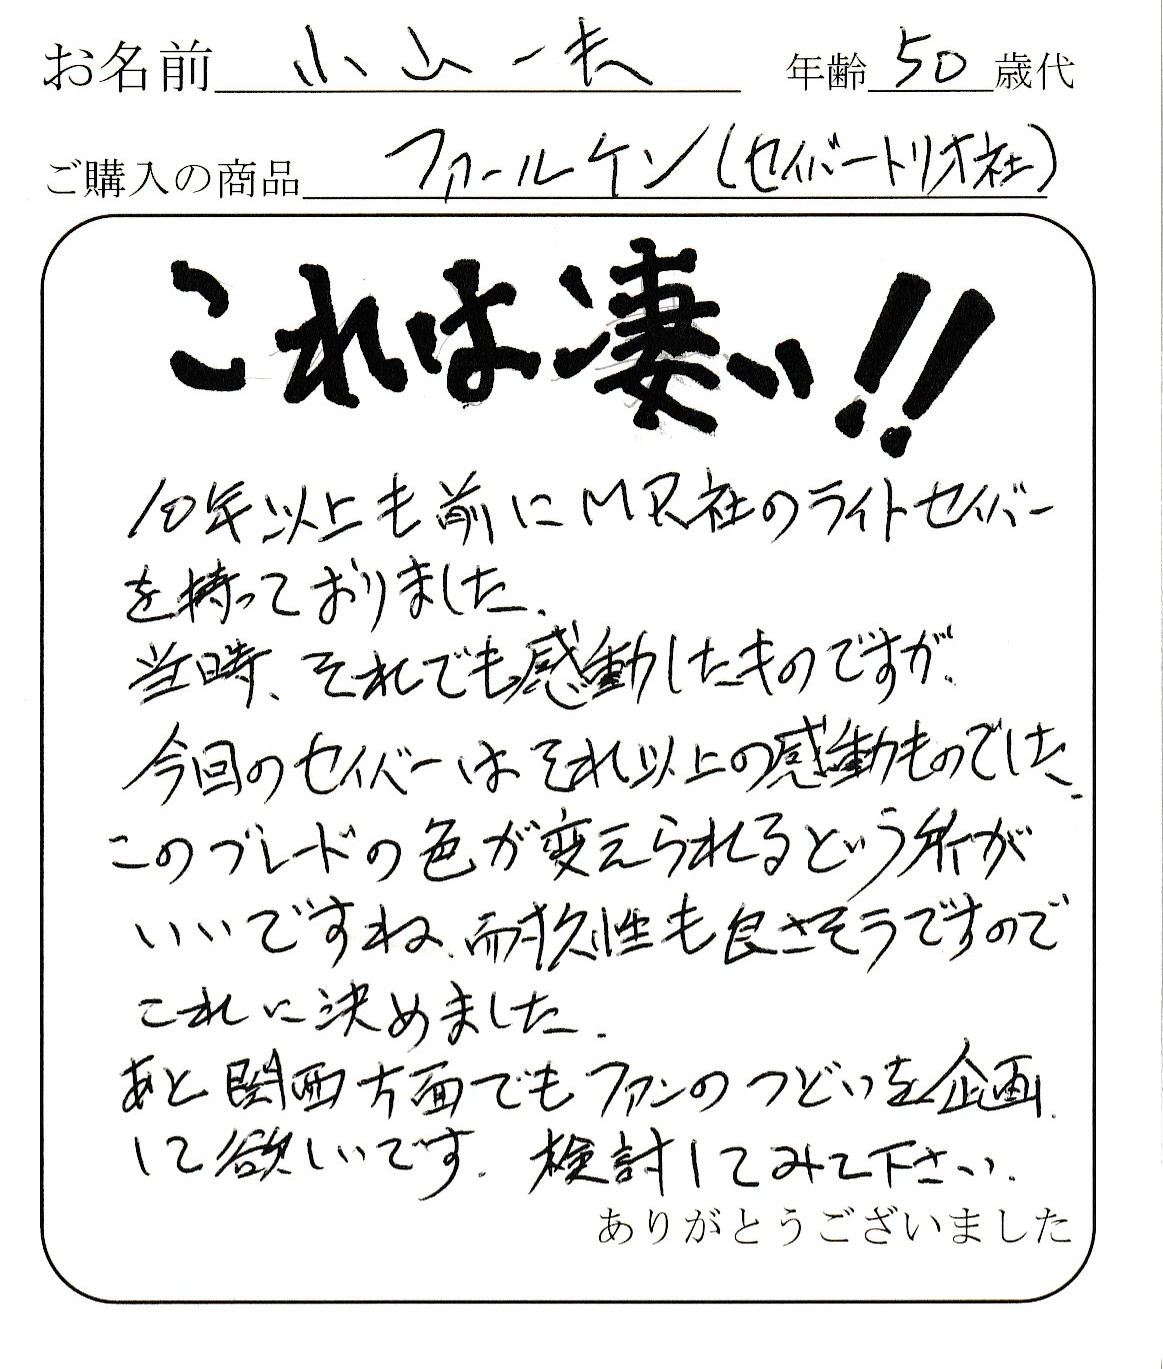 お名前 小山一夫 年齢 50 歳代
ご購入の商品 ファールケン(セイバートリオ社)
これは凄い!!
10年以上も前にMR社のライトセイバー
を持っておりました.
当時、それでも感動したものですが、
今回のセイバーはそれ以上の感動ものでした.
このブレードの色が変えられるという所が
いいですね、耐久性も良さそうですので
これに決めました.
あと関西方面でもファンのつどいを企画
して欲しいです. 検討してみて下さい.
ありがとうございました